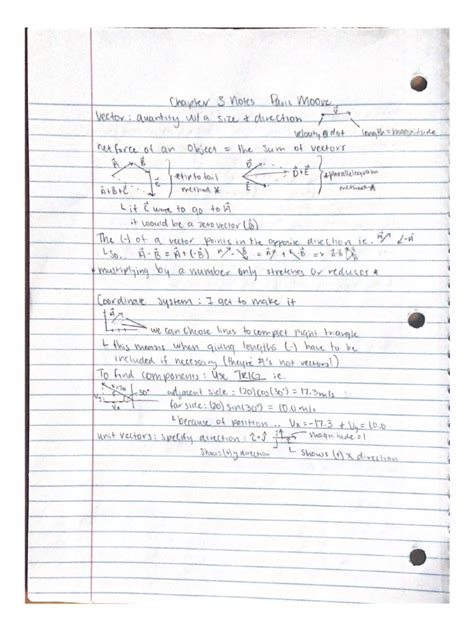 Chapter 3 Notes Paris Moore
Vector: quantity w/ a size + direction
velocity @ dot length = magnitude
net force of an object = the sum of vectors
A B C A+B+C *tip to tail method* D E D+E *parallelogram method*
if C were to go to A
it would be a zero vector (0)
The (-) of a vector points in the opposite direction ie. A -A
So.. A - B = A + (-B)
*multiplying by a number only stretches or reduces*
Coordinate System: I get to make it
we can choose lines to complet right triangle
this means when giving lengths (-) have to be
included if necessary (they're #'s not vectors!)
To find components: Use TRIG ie.
V=20 30° adjacent side = (20)cos(30°) = 17.3 m/s
Vy Vx far side: (20) sin(30°) = 10.0 m/s
because of position .. Vx = -17.3 + Vy = 10.0
unit vectors: specify direction: magnitude = 1
shows (+) y direction shows (+) x direction